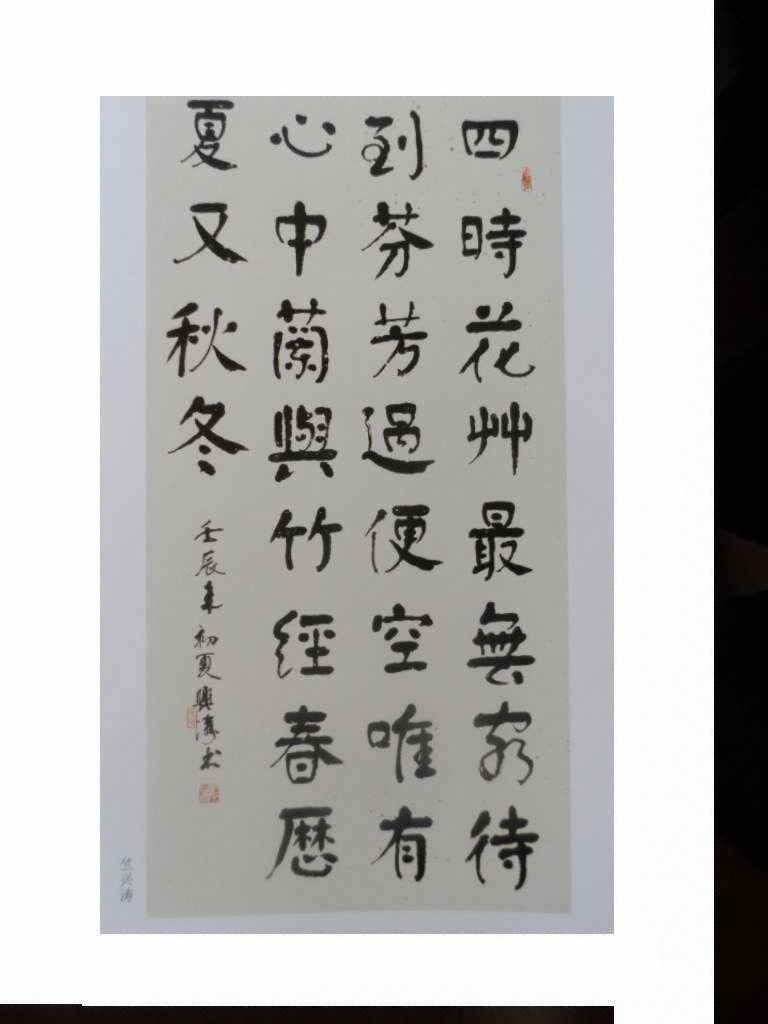 四時花艸最無窮待
到芬芳過便空唯有
心中蘭與竹經春歷
夏又秋冬
壬辰年初夏興濤书
竺兴涛